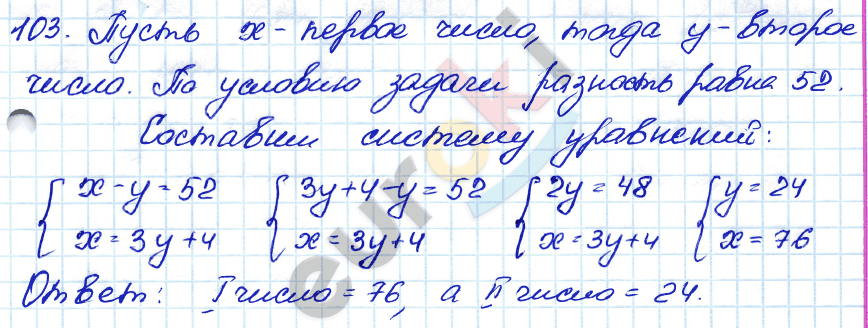 103. Пусть x - первое число, тогда y - второе
число. По условию задачи разность равна 52.
Составим систему уравнений:
{ x - y = 52 { 3y + 4 - y = 52 { 2y = 48 { y = 24
x = 3y + 4 x = 3y + 4 x = 3y + 4 x = 76
Ответ: I число = 76, а II число = 24.
euroki